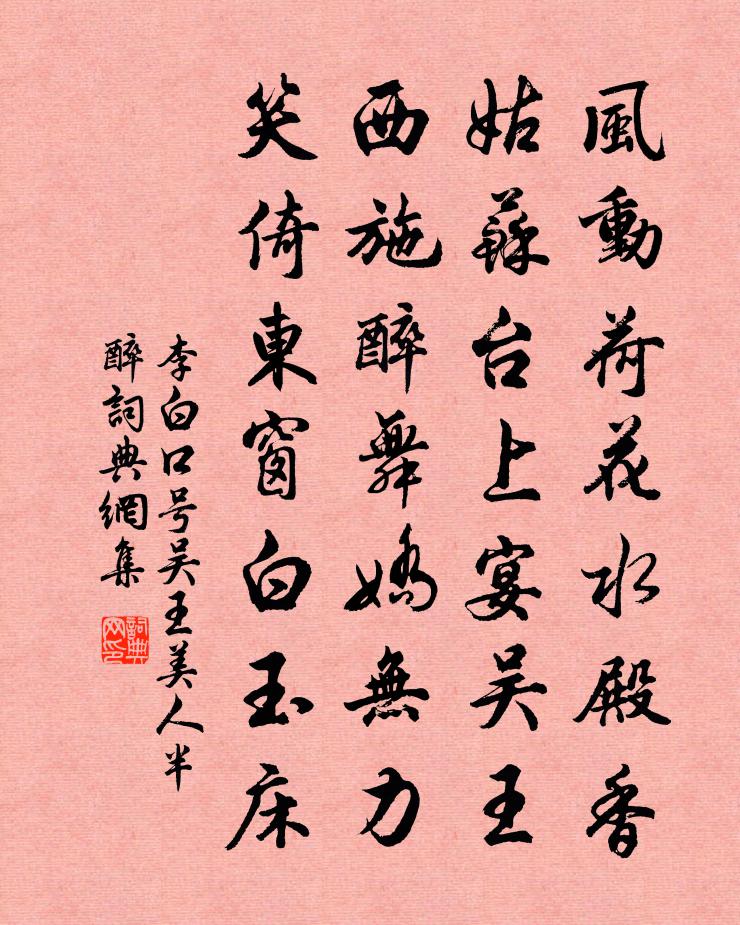 風動荷花水殿香
姑蘇台上宴吴王
西施醉舞嬌無力
笑倚東窗白玉床
李白口号吴王美人半
醉詞典網集
詞典
网印